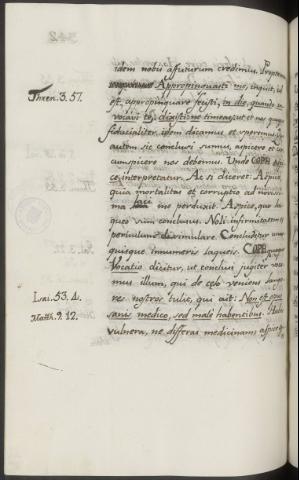 idem nobis affuturum credimus. Propterea
Appropinquasti me, inquit, id
Thren. 3. 57.
est, appropinquare fecisti, in die, quando in
vocavi te, dixisti ne timeas, ut et nos quoque
fiducialiter idem dicamus, et speremus
autem sic conclusi sumus, aspicere et cir
cumspicere nos debemus. Unde COPH
interpretatur. Ac si diceret: Aspice
quia mortalitas et corruptio ad novissi
ma me perduxit. Aspice, quo la
queo vim conclusus. Noli infirmitatem
periculum simulare. Concluditur unus
quisque innumeris laqueis. COPH quoque
Vocatio dicitur, ut conclusi jugiter voce
mus illum, qui de celo veniens lango
Isai. 53. 4.
res nostros tulit, qui ait: Non est opus
Matth. 9. 12.
sanis medico, sed male habentibus.
vulnera, ne differas medicinam, aspice